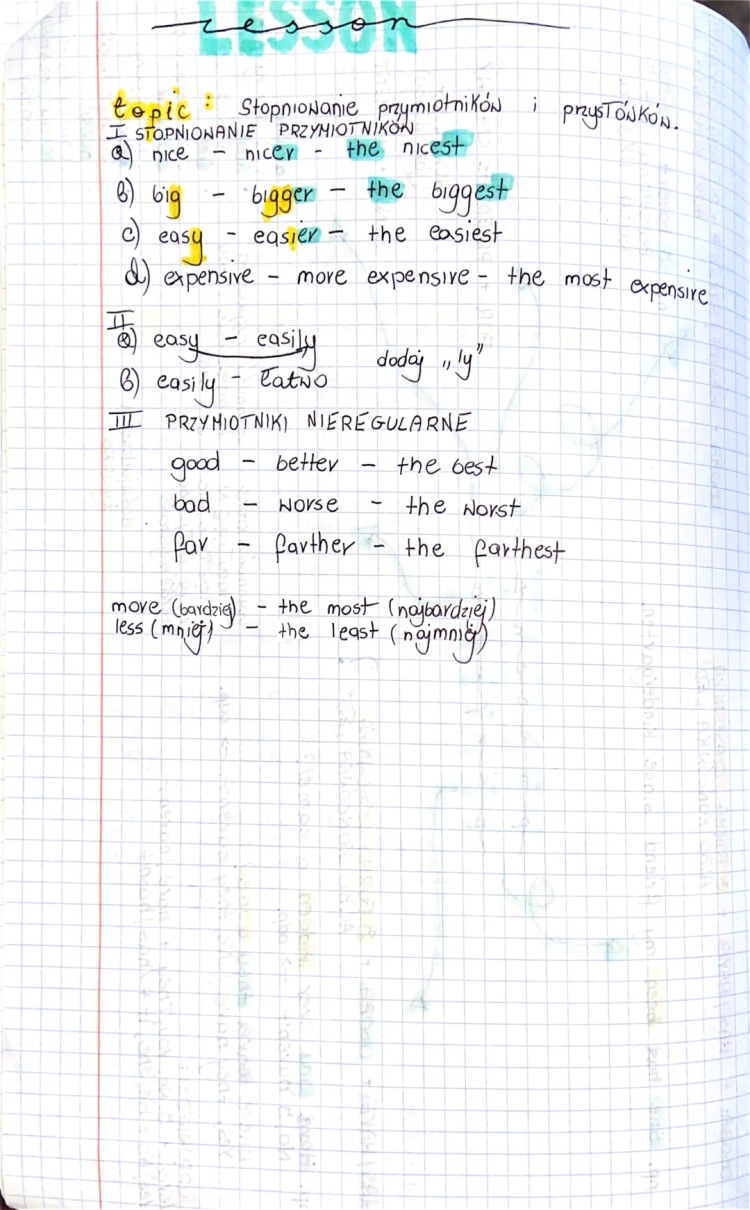 LESSON
lesson
topic: Stopniowanie przymiotników i przysłówków.
I STOPNIOWANIE PRZYMIOTNIKÓW
a) nice - nicer - the nicest
b) big - bigger - the biggest
c) easy - easier - the easiest
d) expensive - more expensive - the most expensive
II
a) easy - easily
dodaj „ly”
b) easily - łatwo
III PRZYMIOTNIKI NIEREGULARNE
good - better - the best
bad - worse - the worst
far - farther - the farthest
more (bardziej) - the most (najbardziej)
less (mniej) - the least (najmniej)